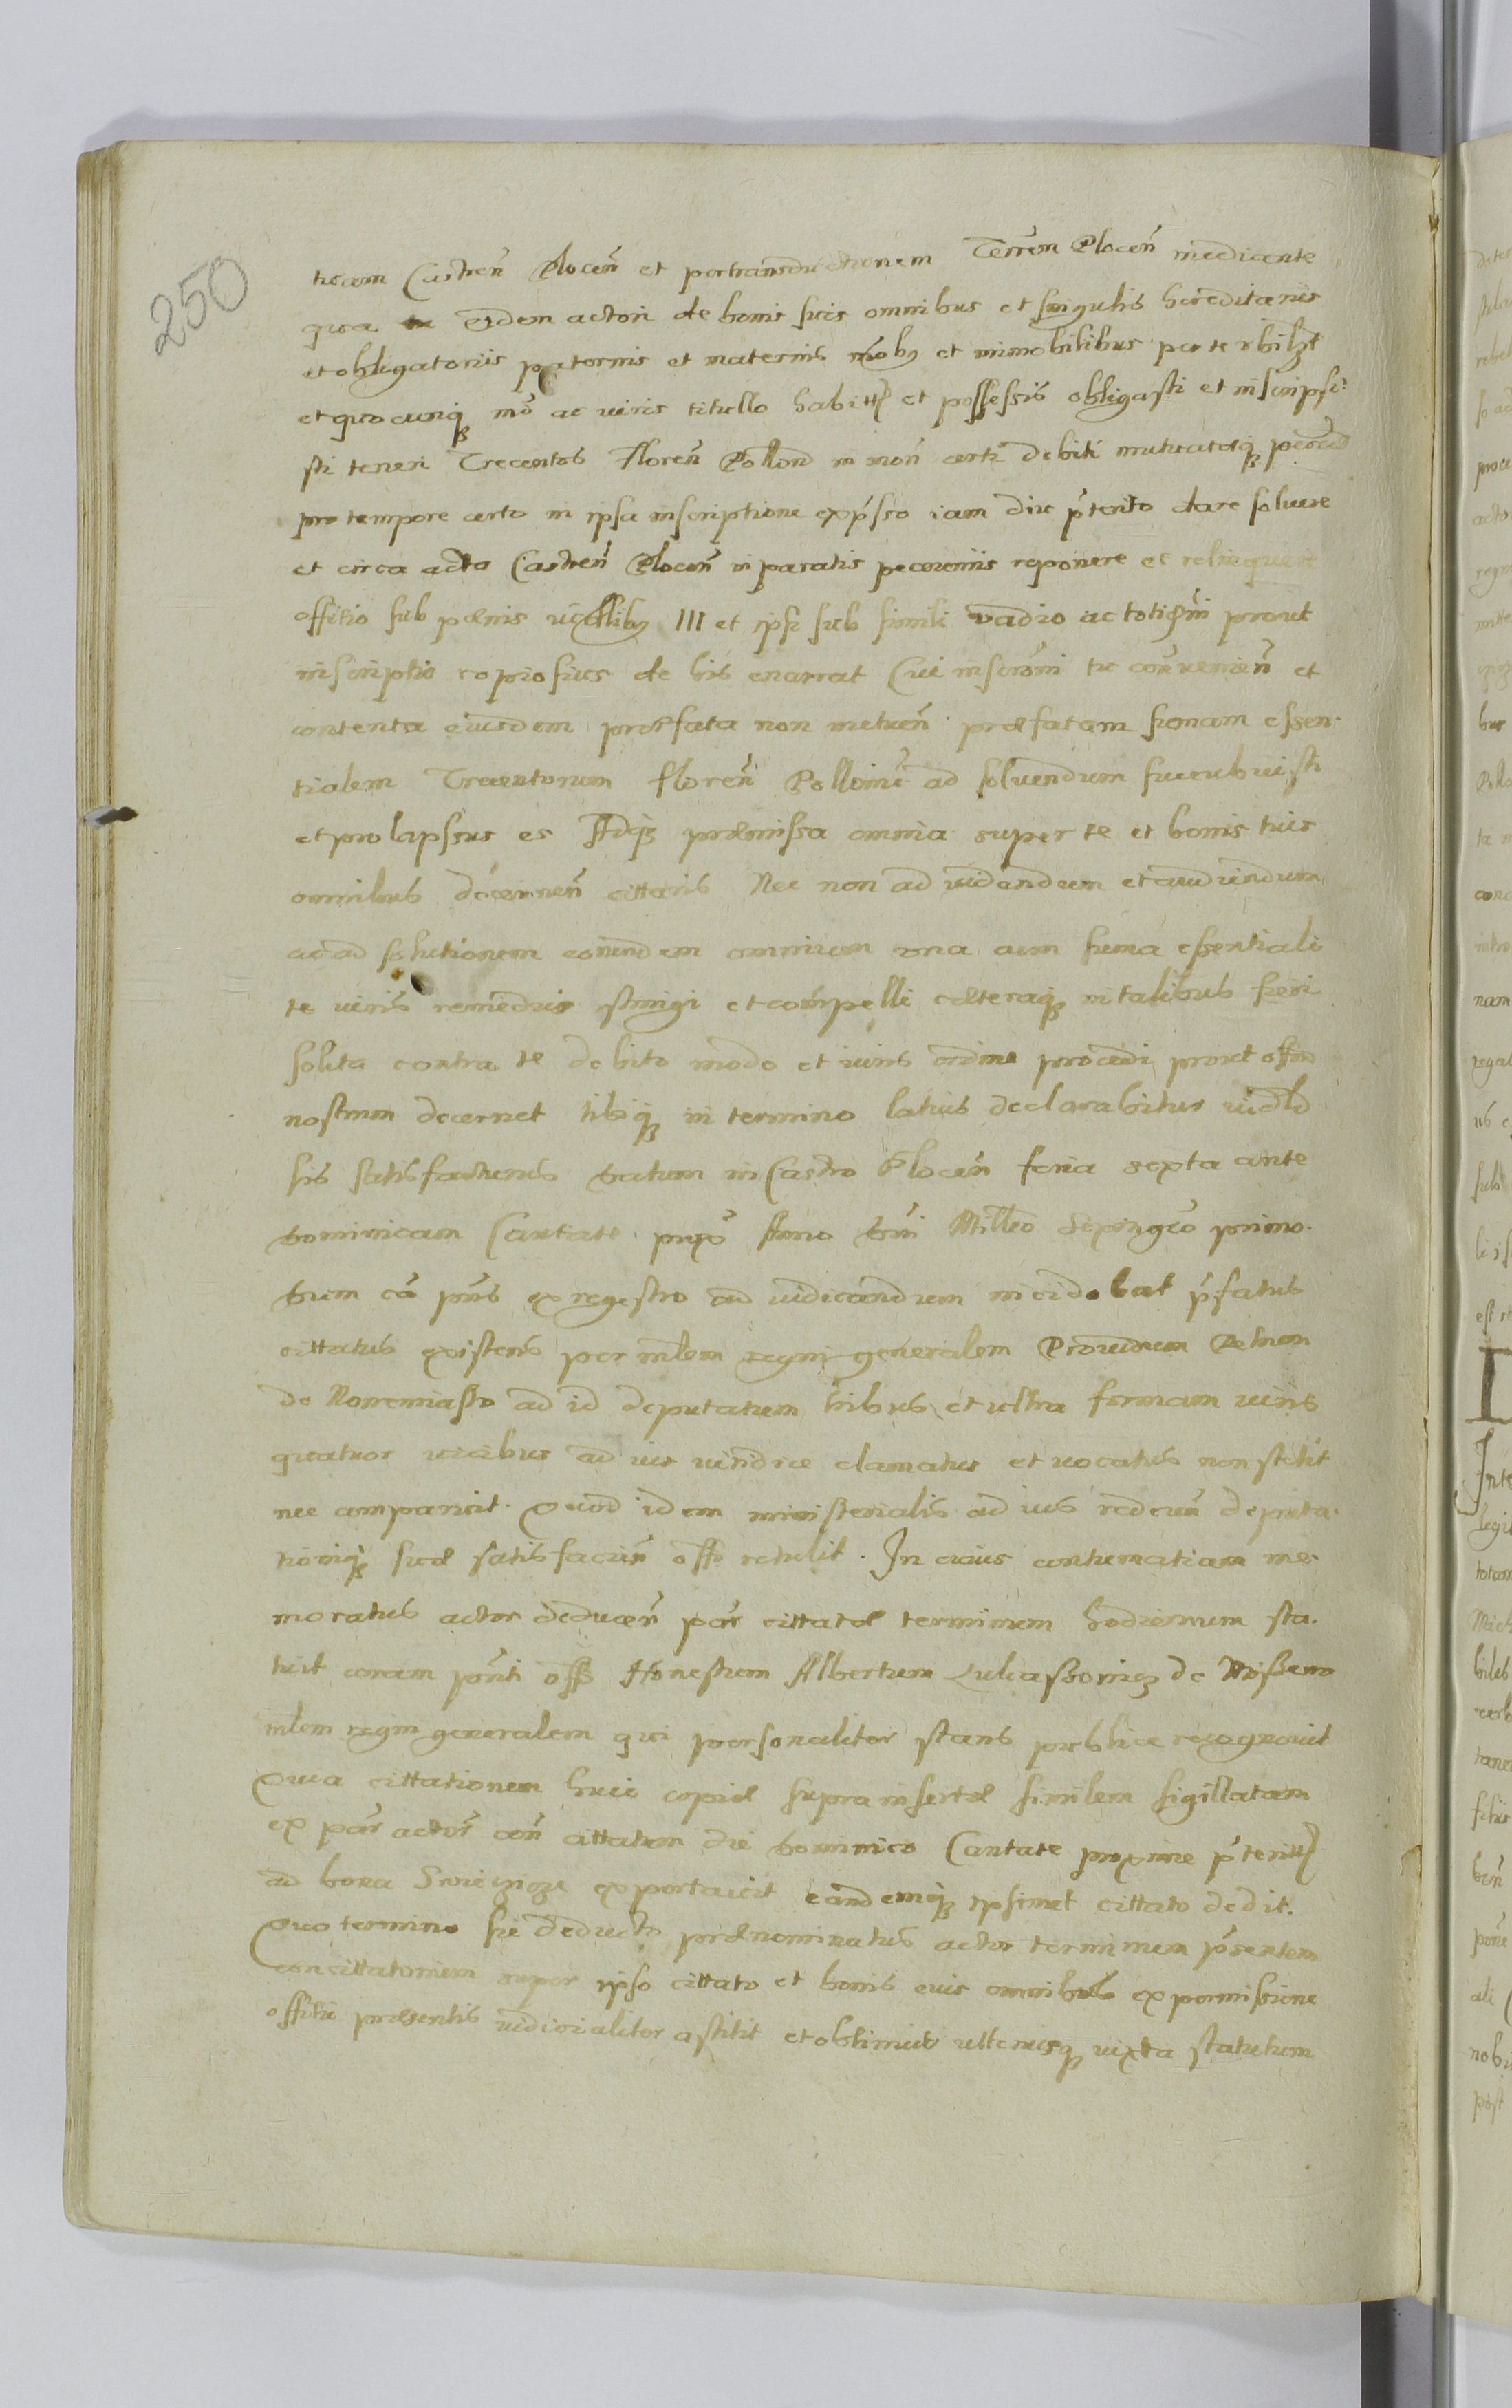 250
tuam Castreñ Ploceñ et pertransductionem Terrem Plocen mediante
qua eidem actori de bonis suis omnibus et singulis hæreditariis
et obligatoriis paternis et maternis mobꝫ et immobilibus per te ubilꝫt
et quocunqꝫ mõ ac iuris titullo habitt et possessis obligasti et inscripsi-
sti teneri Trecentos Floreñ Pollon in moñ certi debiti mutuatæqꝫ pecuniæ
pro tempore certo in ipsa inscriptione exp̃sso iam diu p̃terito dare soluere
et circa acta Castreñ Ploceñ in paratis pecuniis reponere et relinquere
offitio sub pænis III et ipsi sub simili vadio ac totidem prout
inscriptio copiosius de his enarrat Cui inscrõni tu conuenieñ et
contenta eiusdem præfata non metueñ præfatam sumam essen-
tialem Trecentorum floreñ Pollonic ad soluendum sucubuisti
et prolapsus es Adqꝫ præmissa omnia super te et bonis tuis
omnibus decerneñ cittaris Nec non ad uidendum et audiendum
ac ad solutionem eorundem omnium una cum suma essentiali
te iuris remediis stringi et compelli cæteraqꝫ in talibus fieri
solita contra te debito modo et iuris ordine procedi prout offm
nostrum decernet tibiqꝫ in termino latius declarabitur iudld
sis satisfacturus Datum in Castro Ploceñ feria sexta ante
Dominicam Cantate prox̃ Anno Dñi Milleo Sexingeo primo.
Dum cã pñs ex regestro ad iudicandum incidebat p̃fatus
cittatus existens per mlem regni generalem Prouidum Petrum
de Nouemiasto ad id deputatum tribus et ultra formam iuris
quatuor uicibus ad ius iuridice clamatus et uocatus non stetit
nec comparuit. Quod idem ministerialis ad ius redeuñ deputa-
tioniqꝫ suæ satisfacieñ offo retulit. In cuius contumatiam me-
moratus actor deduceñ par cittatæ terminum hodiernum sta-
tuit coram pñti offo Honestum Albertum Lukaszowicz de
mlem regni generalem qui personaliter stans publice recognouit
Quia cittationem huic copiæ supra insertæ similem sigillatam
ex par actoris coñ cittatum die Dominico Cantate proxime p̃teritt
ad bona exportauit eandemqꝫ ipsimet cittato dedit.
Quo termino sic deducto prænominatus actor terminum p̃sentem
concittatorium super ipso cittato et bonis eius omnibus ex permissione
offitii præsentis iudicialiter astitit et obtinuit ulteriusqꝫ iuxta statutum